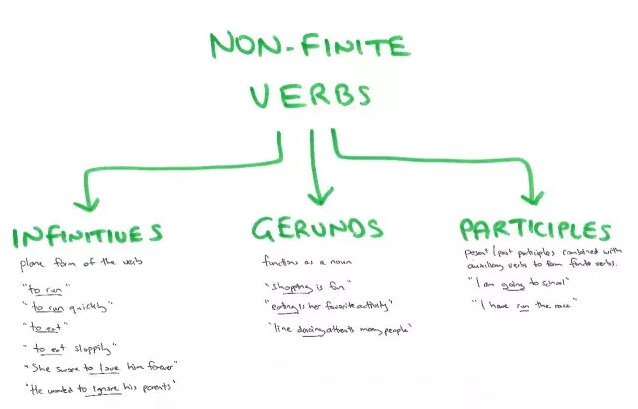 NON-FINITE
VERBS
INFINITIVES
GERUNDS
PARTICIPLES
plane form of the verb
"to run"
"to run quickly"
"to eat"
"to eat sloppily"
"She swore to love him forever"
"He wanted to ignore his parents"
functions as a noun
"shopping is fun"
"eating is her favorite activity"
"line dancing attracts many people"
present/past participles combined with
auxiliary verbs to form finite verbs.
"I am going to school"
"I have run the race"